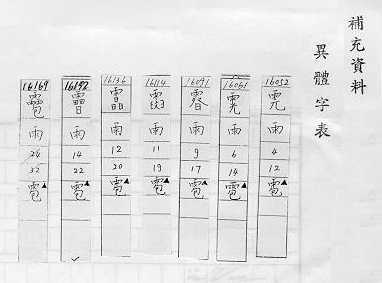 補充資料
異體字表
16052
雨
4
12
雹▲
16061
雨
6
14
雹▲
16091
雨
9
17
雹▲
16114
雨
11
19
雹▲
16136
雨
12
20
雹▲
雨
14
22
雹▲
16169
雨
24
32
雹▲